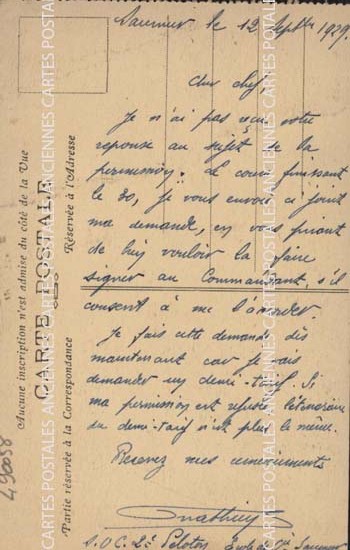 Saumur le 12 Septbre 1929
Cher chef,
Je n'ai pas reçu votre
reponse au sujet de la
permission. Le cours finissant
le 30, je vous envoie ci joint
ma demande, en vous priant
de bien vouloir la faire
signer au Commandant, s'il
consent à me l'accorder.
Je fais cette demande dès
maintenant car je vais
demander un demi-tarif. Si
ma permission est refusée l'itinéraire
du demi-tarif n'est plus le même.
Recevez mes remerciements
Mathieu
2e Peloton
Aucune inscription n'est admise du côté de la Vue
CARTE POSTALE
Partie réservée à la Correspondance
Réservée à l'Adresse
490058
CARTES POSTALES ANCIENNES